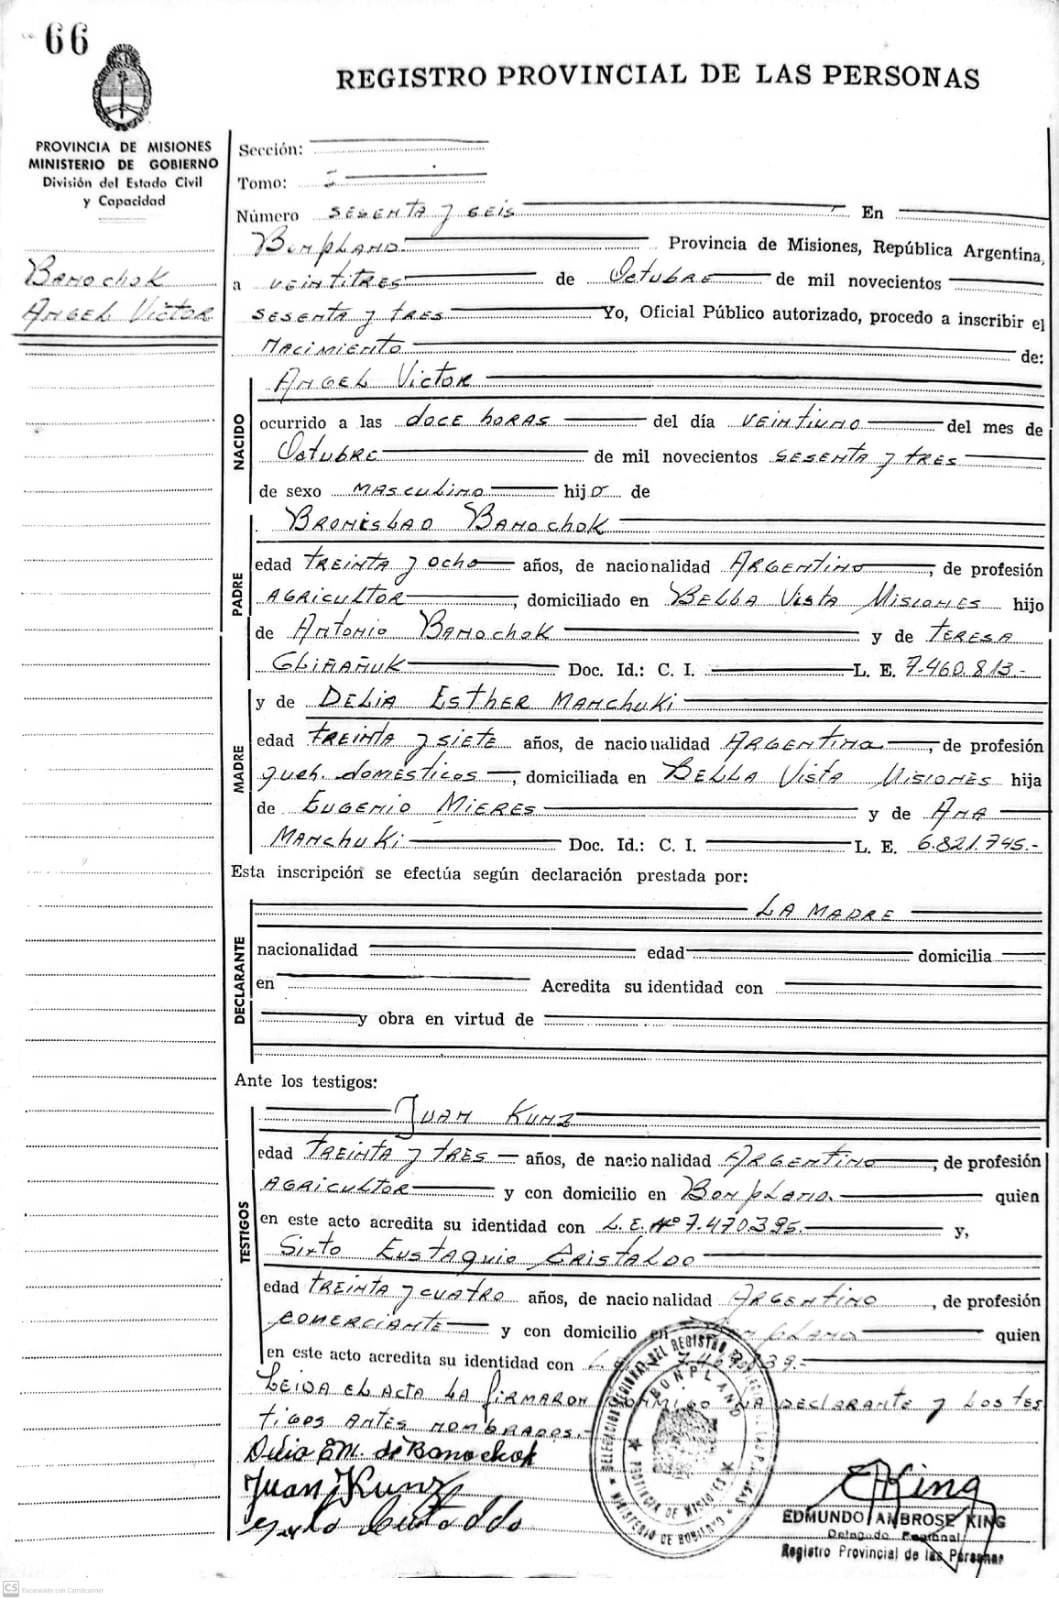 66
REGISTRO PROVINCIAL DE LAS PERSONAS
PROVINCIA DE MISIONES
MINISTERIO DE GOBIERNO
División del Estado Civil
y Capacidad
Banochok
Angel Victor
Sección:
Tomo: I
Número sesenta y seis En
Bonpland Provincia de Misiones, República Argentina,
a veintitres de Octubre de mil novecientos
sesenta y tres Yo, Oficial Público autorizado, procedo a inscribir el
nacimiento de:
NACIDO
Angel Victor
ocurrido a las doce horas del día veintiuno del mes de
Octubre de mil novecientos sesenta y tres
de sexo masculino hijo de
PADRE
Bronislao Banochok
edad treinta y ocho años, de nacionalidad Argentino, de profesión
agricultor, domiciliado en Bella Vista Misiones hijo
de Antonio Banochok y de Teresa
Gliñañuk Doc. Id.: C. I. L. E. 7.460.813.-
MADRE
y de Delia Esther Manchuki
edad treinta y siete años, de nacionalidad Argentina, de profesión
queh. domésticos, domiciliada en Bella Vista Misiones hija
de Eugenio Mieres y de Ana
Manchuki Doc. Id.: C. I. L. E. 6.821.745.-
Esta inscripción se efectúa según declaración prestada por:
DECLARANTE
La madre
nacionalidad edad domicilia
en Acredita su identidad con
y obra en virtud de
Ante los testigos:
TESTIGOS
Juan Kunz
edad treinta y tres años, de nacionalidad Argentino, de profesión
agricultor y con domicilio en Bonpland. quien
en este acto acredita su identidad con L.E. Nº 7.470.395.- y,
Sixto Eustaquio Cristaldo
edad treinta y cuatro años, de nacionalidad Argentino, de profesión
comerciante y con domicilio en Bonpland quien
en este acto acredita su identidad con
Leida el acta la firmaron conmigo la declarante y los tes
tigos antes nombrados.-
Delia E M. de Banochok
Juan Kunz
Sixto Cristaldo
DELEGACION REGIONAL DEL REGISTRO PROVINCIAL DE LAS PERSONAS
BONPLAND
PROVINCIA DE MISIONES
MINISTERIO DE GOBIERNO
EKing
EDMUNDO AMBROSE KING
Delegado Regional
Registro Provincial de las Personas
CS Escaneado con CamScanner